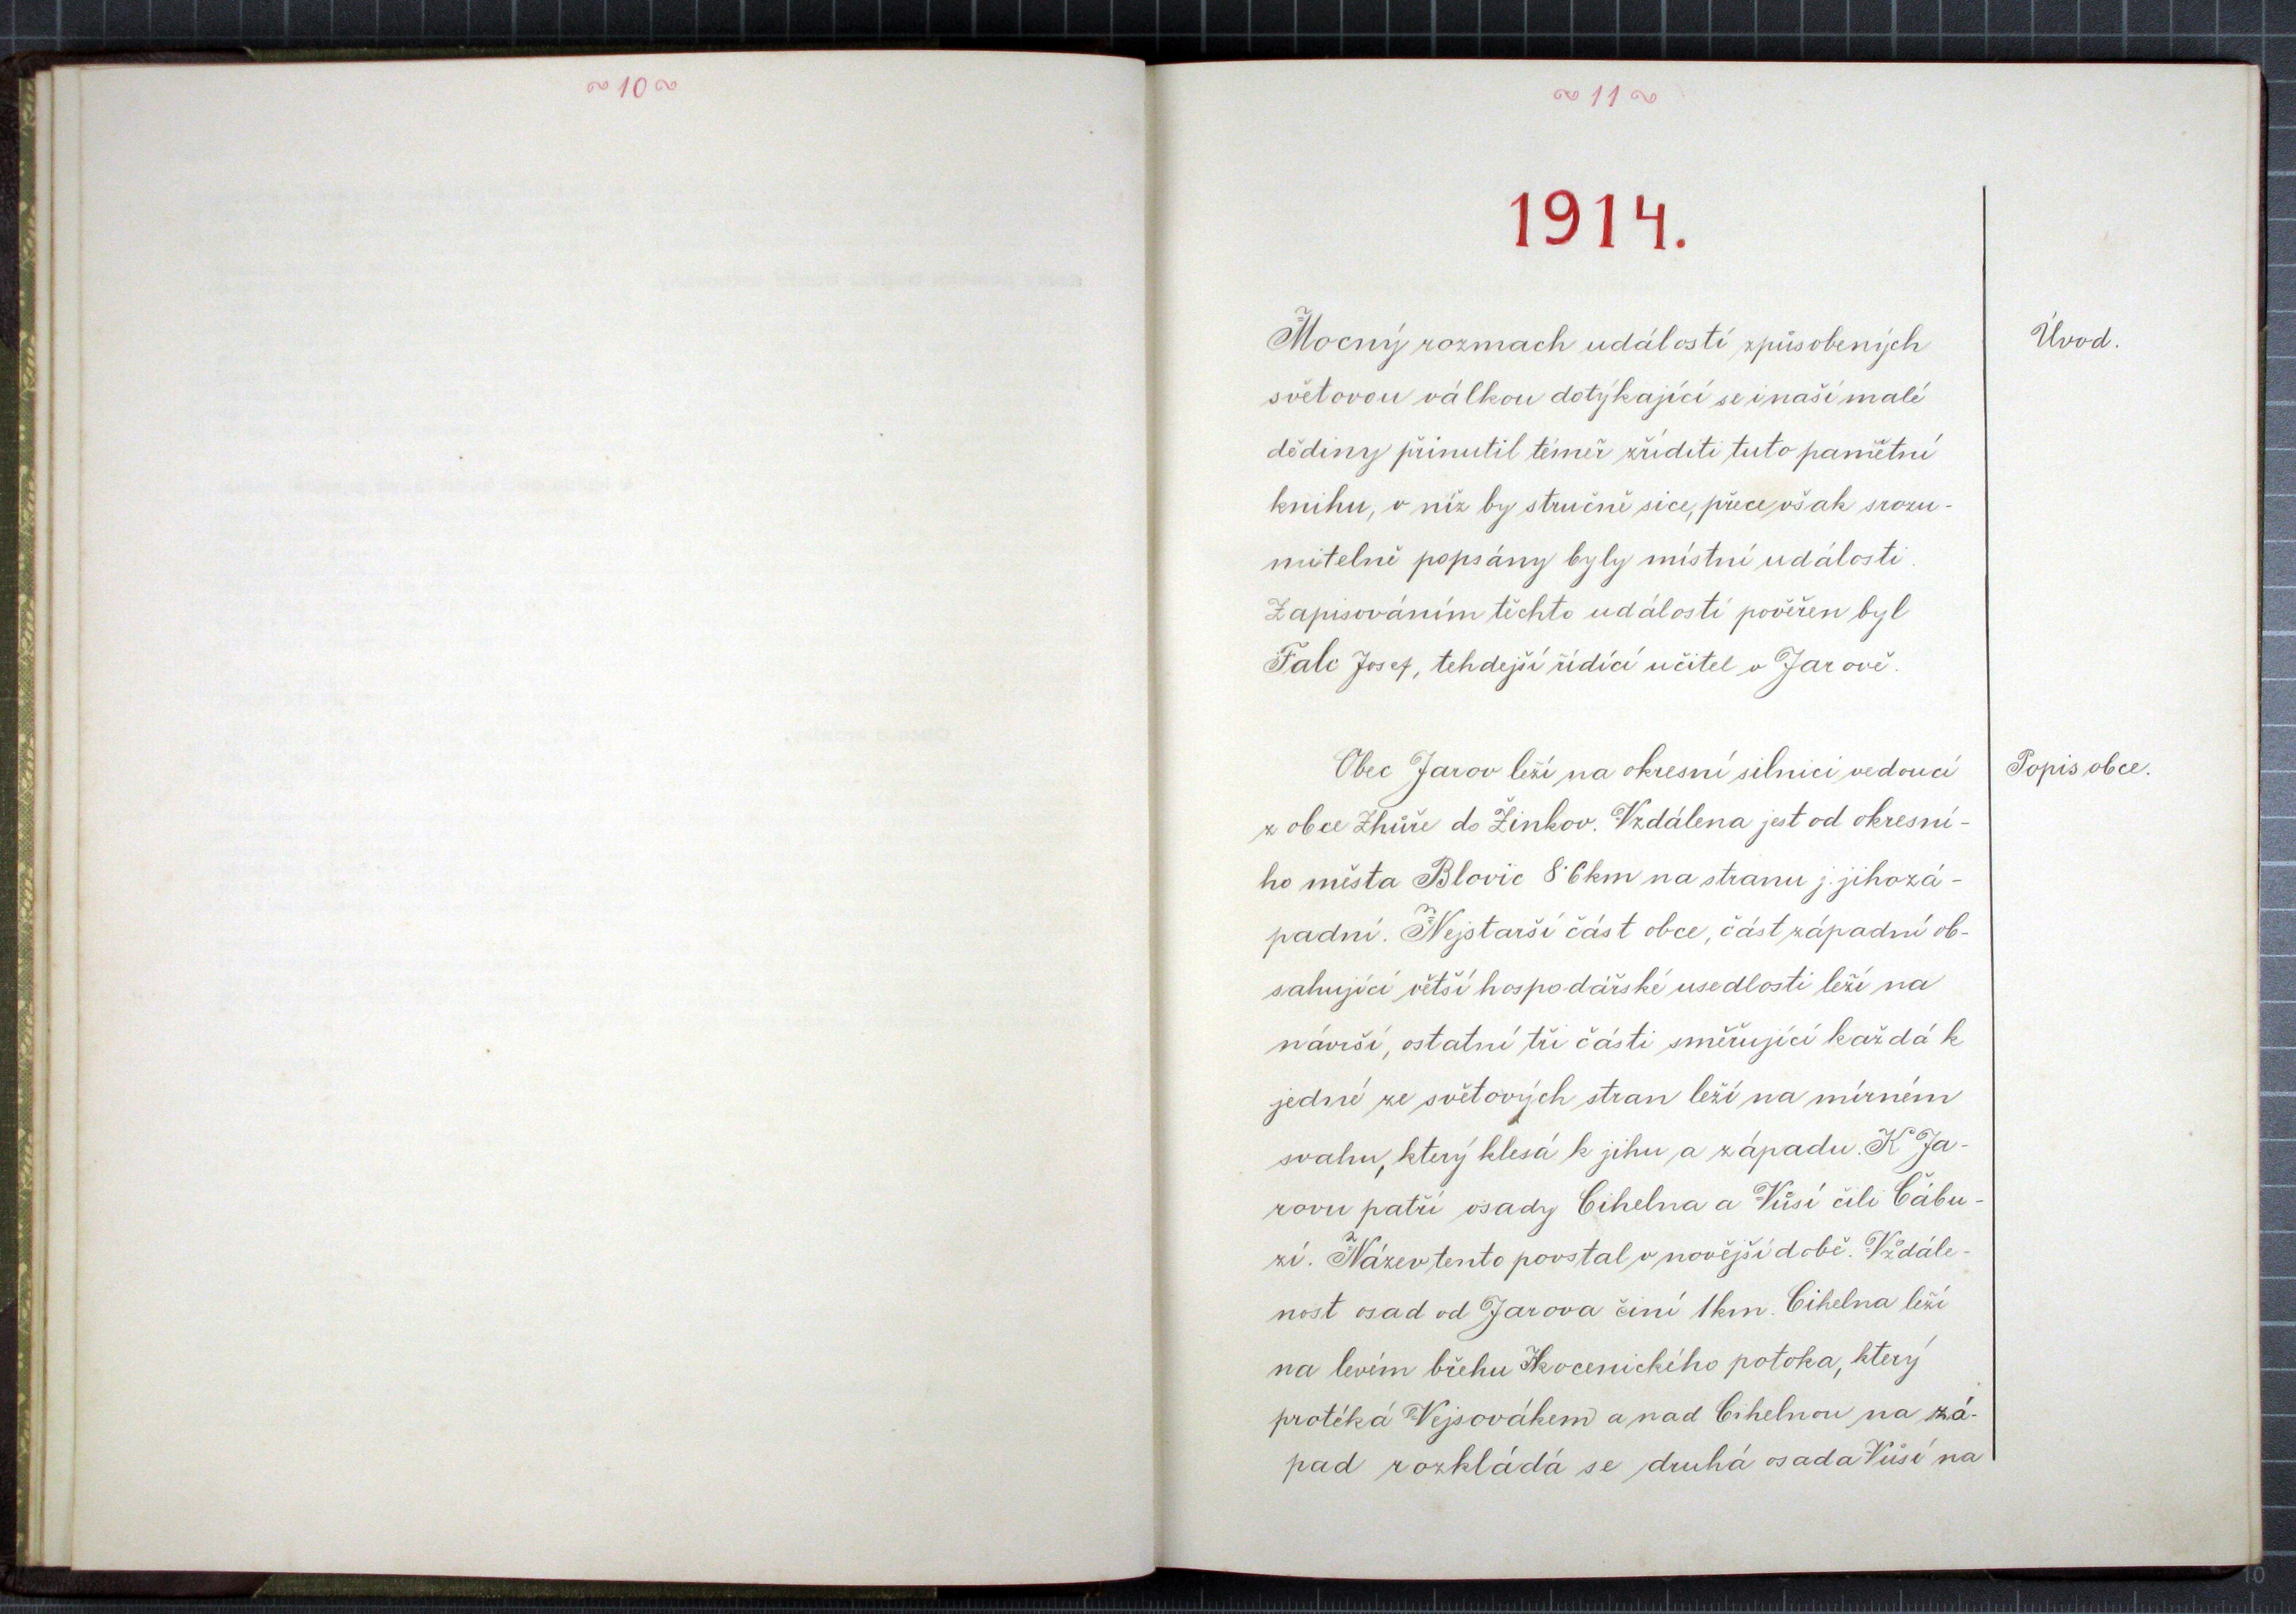 ~10~
~11~
1914.
Mocný rozmach událostí způsobených
Úvod.
světovou válkou dotýkající se i naší malé
dědiny přinutil téměř zříditi tuto pamětní
knihu, v níž by stručně sice, přece však srozu-
mitelně popsány byly místní události.
Zapisováním těchto událostí pověřen byl
Falc Josef, tehdejší řídící učitel v Jarově.
Obec Jarov leží na okresní silnici vedoucí
Popis obce.
z obce Zhůře do Žinkov. Vzdálena jest od okresní-
ho města Blovic 8·6 km na stranu j. jihozá-
padní. Nejstarší část obce, část západní ob-
sahující větší hospodářské usedlosti leží na
návrší, ostatní tři části směřující každá k
jedné ze světových stran leží na mírném
svahu, který klesá k jihu a západu. K Ja-
rovu patří osady Cihelna a Vůsí čili Cábu-
zí. Název tento povstal v novější době. Vzdále-
nost osad od Jarova činí 1 km. Cihelna leží
na levém břehu potoka, který
protéká Vejsovákem a nad Cihelnou na zá-
pad rozkládá se druhá osada Vůsí na
10